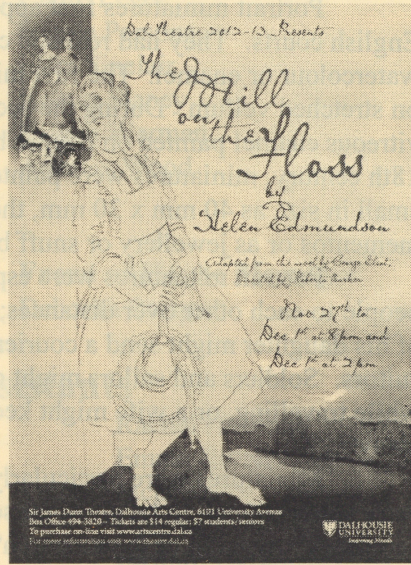 DalTheatre 2012-13 Presents
The Mill
on the Floss
by
Helen Edmundson
Adapted from the novel by George Eliot,
Directed by Roberta Barker
Nov 27th to
Dec 1st at 8pm and
Dec 1st at 2pm
Sir James Dunn Theatre, Dalhousie Arts Centre, 6101 University Avenue
Box Office 494-3820 – Tickets are $14 regular; $7 students/seniors
To purchase on-line visit www.artscentre.dal.ca
For more information visit www.theatre.dal.ca
DALHOUSIE
UNIVERSITY
Inspiring Minds